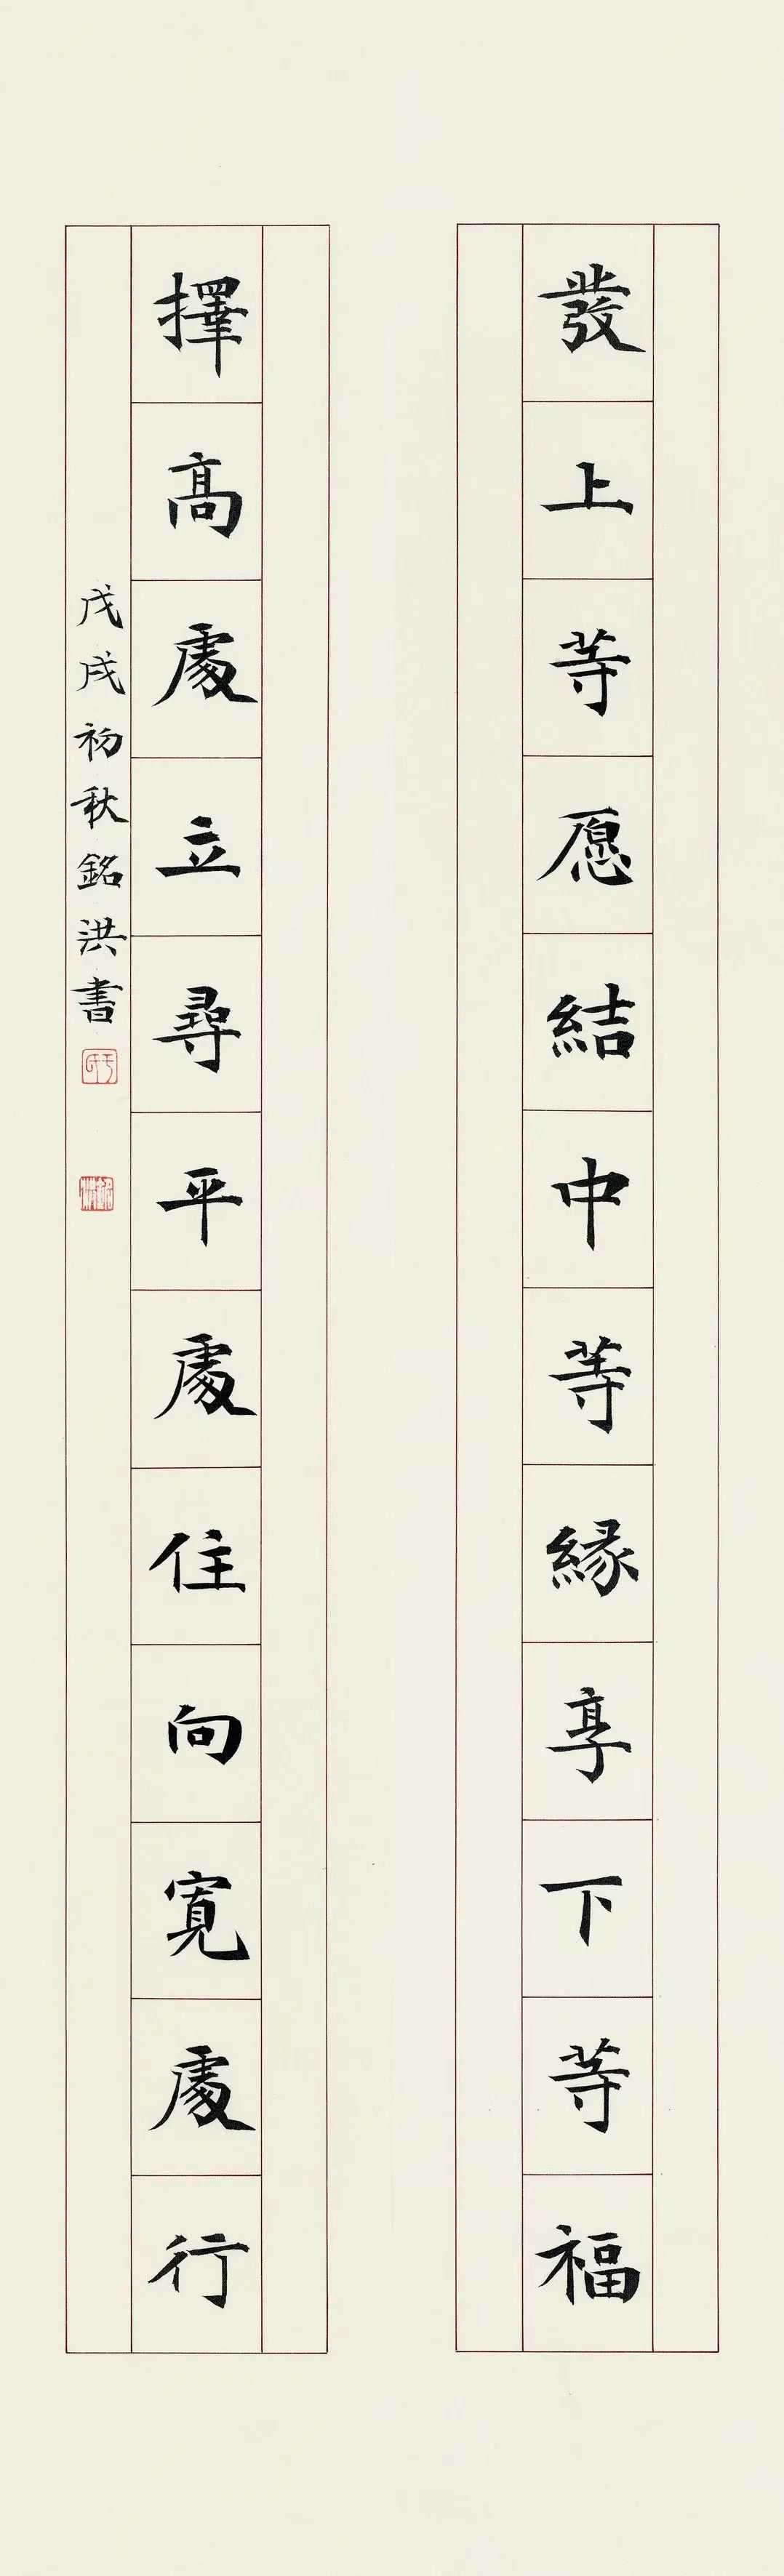 發上等愿結中等緣享下等福
擇高處立尋平處住向寬處行
戊戌初秋銘洪書